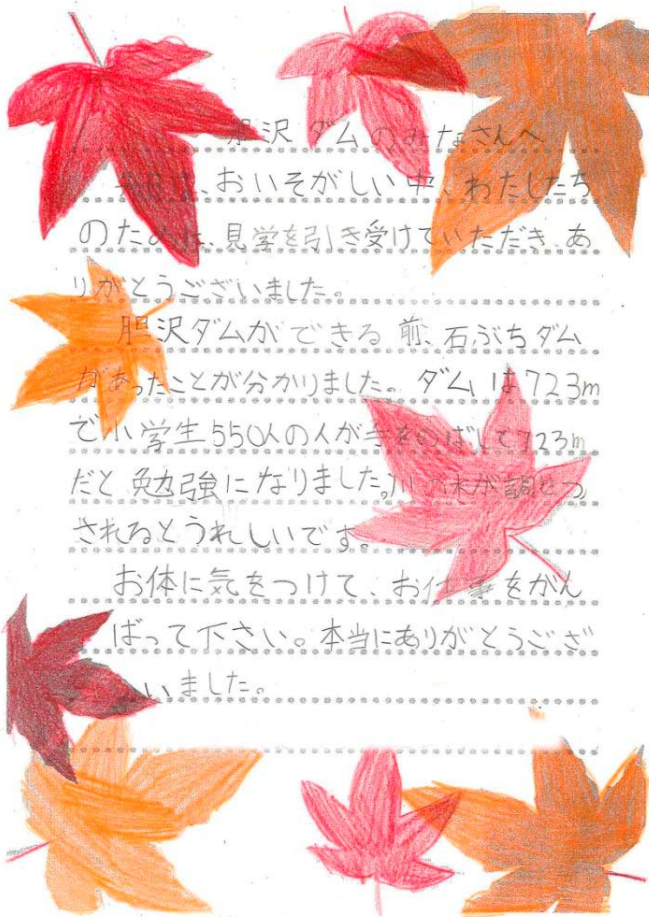 胆沢ダムのみなさんへ
、おいそがしい中、わたしたち
のために、見学を引き受けていただき、あ
りがとうございました。
胆沢ダムができる前、石ぶちダム
があったことが分かりました。ダムは723m
で小学生550人の人が手をのばして723m
だと勉強になりました。川の水が調せつ
されるとうれしいです。
お体に気をつけて、お仕事をがん
ばって下さい。本当にありがとうござ
いました。